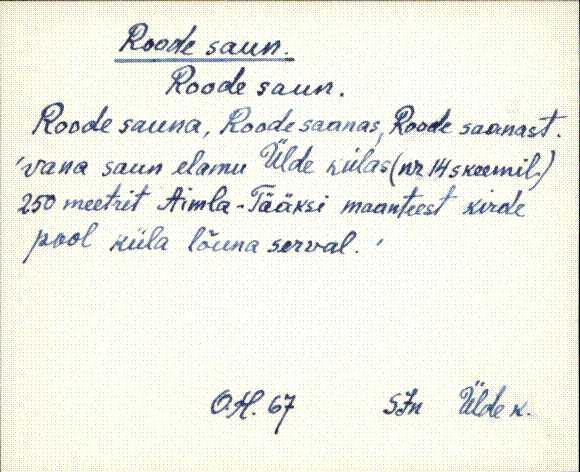 Roode saun.
Roode saun.
Roode sauna, Roode saanas, Roode saanast.
'vana saun elamu Ülde külas (nr 14 skeemil)
250 meetrit Aimla-Tääksi maanteest kirde
pool küla lõuna serval.'
O.H. 67 SJn Ülde k.